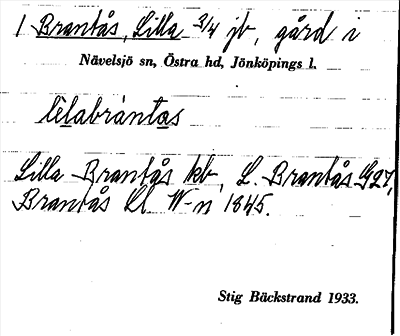 1 Brantås, Lilla 3/4 jb, gård i
Nävelsjö sn, Östra hd, Jönköpings l.
lìlabràntas
Lilla Brantås kb, L. Brantås G27,
Brantås Ll. W-n 1845.
Stig Bäckstrand 1933.